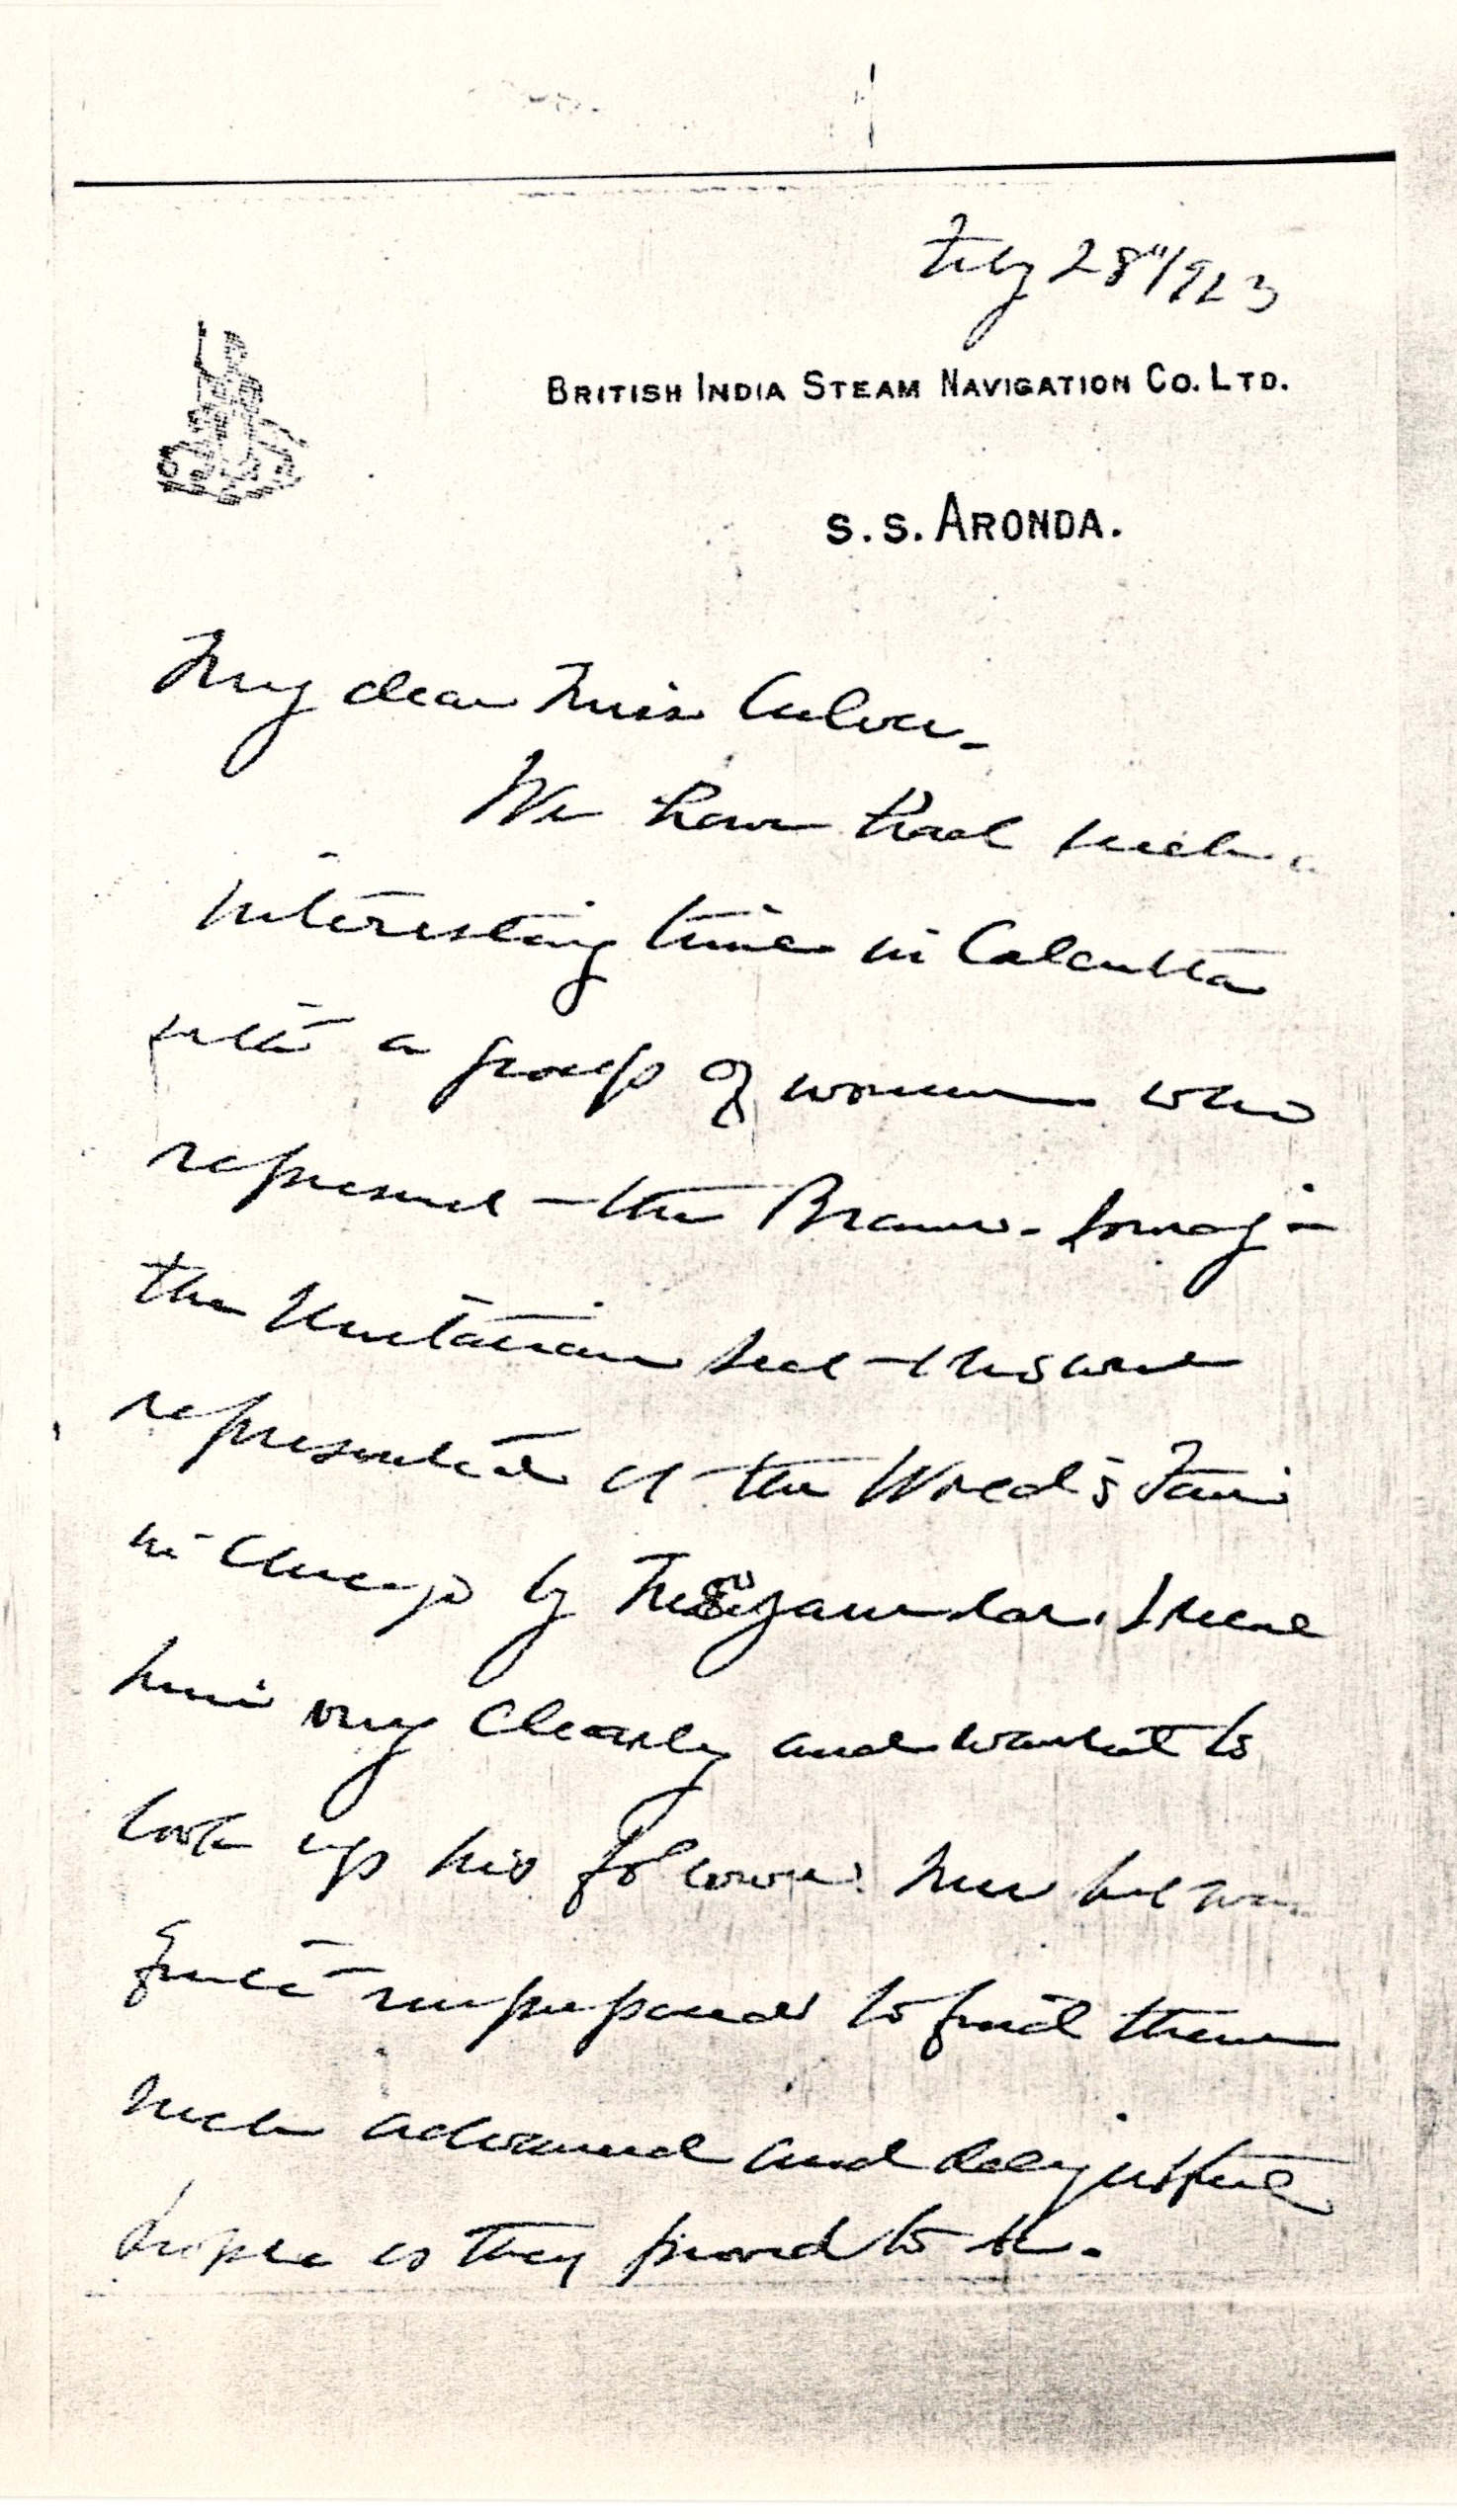 Feby 28"/923
BRITISH INDIA STEAM NAVIGATION CO. LTD.
S.S. ARONDA.
My dear Miss Culver -
We have had such a
interesting time in Calcutta
with a group of women who
represent - the Bramo - Somaj -
the Unitarian sect - that was
represented at the World's Fair
in Chicago by Mozyamdar. I recall
him very clearly and wanted to
look up his followers here but was
quite unprepared to find them
such advanced and delightful
people as they proved to be.